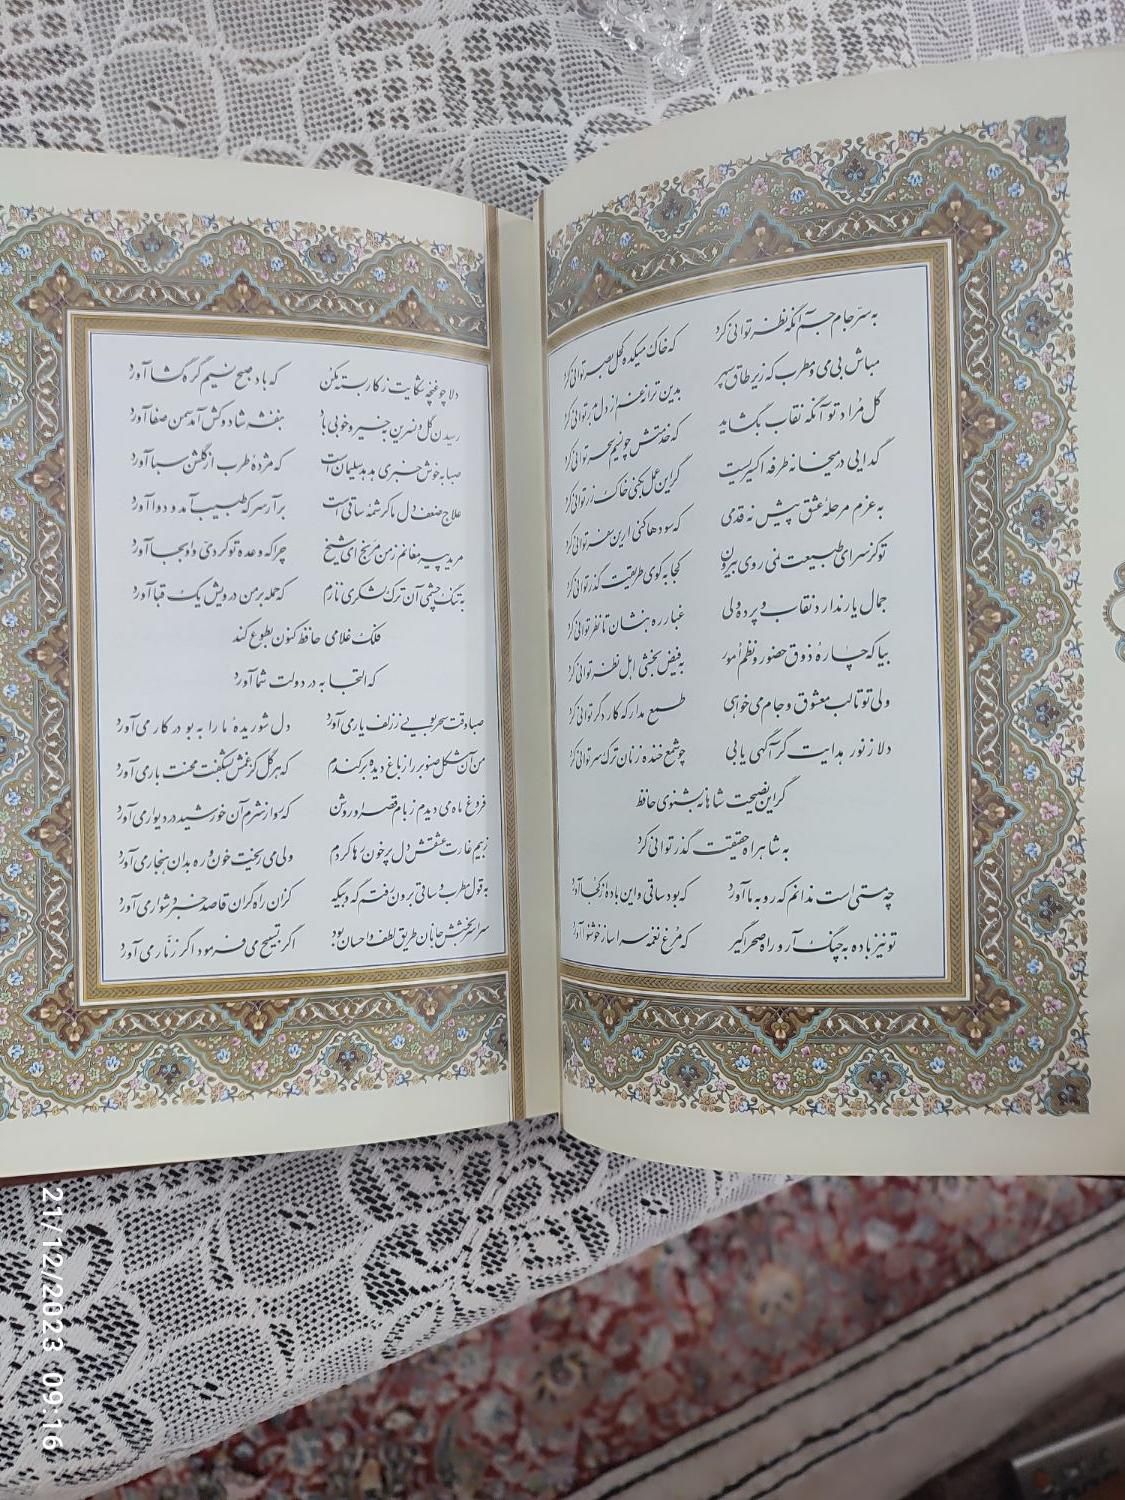 به سر جام جم آنگه نظر توانی کرد که خاک میکده کحل بصر توانی کرد
مباش بی می و مطرب که زیر طاق سپهر بدین ترانه غم از دل بدر توانی کرد
گل مراد تو آنگه نقاب بگشاید که خدمتش چو نسیم سحر توانی کرد
گدایی در میخانه طرفه اکسیریست گر این عمل بکنی خاک زر توانی کرد
به عزم مرحله عشق پیش نه قدمی که سودها کنی ار این سفر توانی کرد
تو کز سرای طبیعت نمی روی بیرون کجا به کوی طریقت گذر توانی کرد
جمال یار ندارد نقاب و پرده ولی غبار ره بنشان تا نظر توانی کرد
بیا که چاره ذوق حضور و نظم امور به فیض بخشی اهل نظر توانی کرد
ولی تو تا لب معشوق و جام می خواهی طمع مدار که کار دگر توانی کرد
دلا ز نور هدایت گر آگهی یابی چو شمع خنده زنان ترک سر توانی کرد
گر این نصیحت شاهانه بشنوی حافظ
به شاهراه حقیقت گذر توانی کرد
چه مستی است ندانم که رو به ما آورد که بود ساقی و این باده از کجا آورد
تو نیز باده به چنگ آر و راه صحرا گیر که مرغ نغمه سرا ساز خوشنوا آورد
دلا چو غنچه شکایت ز کار بسته مکن که باد صبح نسیم گره گشا آورد
رسیدن گل و نسرین به خیر و خوبی باد بنفشه شاد و کش آمد سمن صفا آورد
صبا به خوش خبری هدهد سلیمان است که مژده طرب از گلشن سبا آورد
علاج ضعف دل ما کرشمه ساقی است برآر سر که طبیب آمد و دوا آورد
مرید پیر مغانم ز من مرنج ای شیخ چرا که وعده تو کردی و او بجا آورد
به تنگ چشمی آن ترک لشکری نازم که حمله بر من درویش یک قبا آورد
فلک غلامی حافظ کنون به طوع کند
که التجا به در دولت شما آورد
صبا وقت سحر بویی ز زلف یار می آورد دل شوریده ما را به بو در کار می آورد
من آن شکل صنوبر را ز باغ دیده برکندم که هر گل کز غمش بشکفت محنت بار می آورد
فروغ ماه می دیدم ز بام قصر او روشن که رو از شرم آن خورشید در دیوار می آورد
ز بیم غارت عشقش دل پر خون رها کردم ولی می ریخت خون و ره بدان هنجار می آورد
به قول مطرب و ساقی برون رفتم گه و بیگه کز آن راه گران قاصد خبر دشوار می آورد
سراسر بخشش جانان طریق لطف و احسان بود اگر تسبیح می فرمود اگر زنار می آورد
21/12/2023 09:16